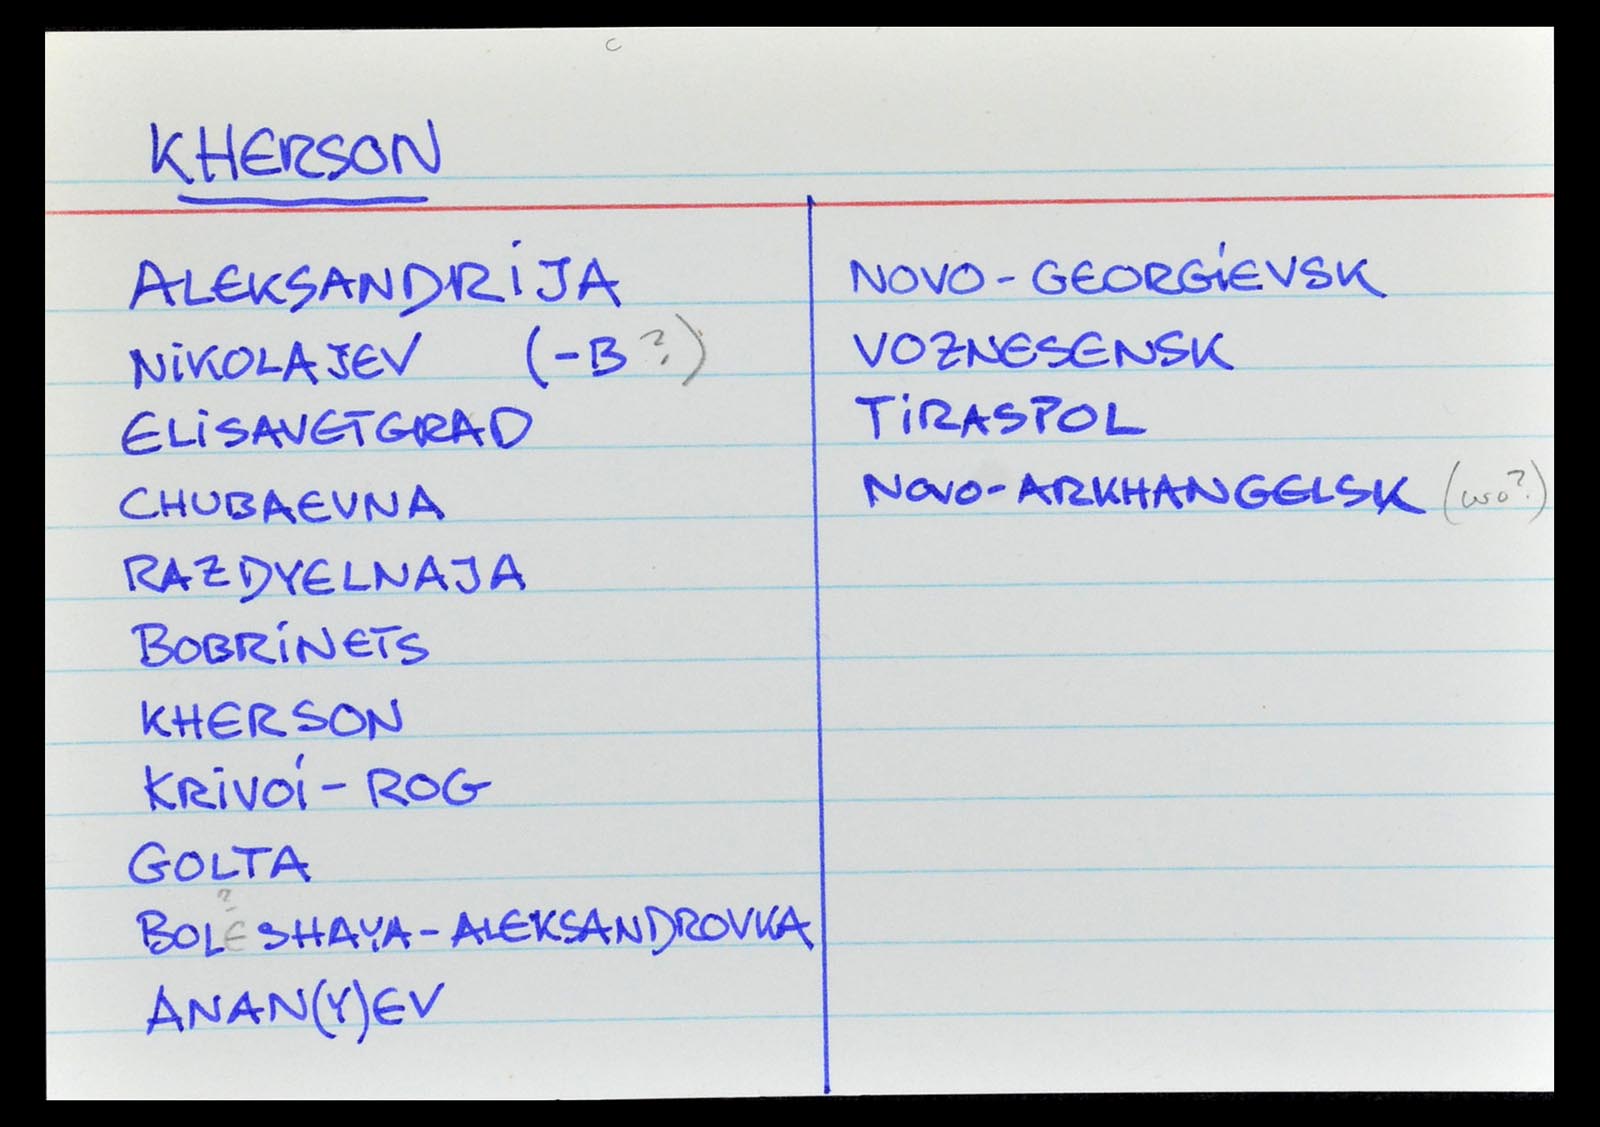 KHERSON
ALEKSANDRIJA
NIKOLAJEV (-B?)
ELISAVETGRAD
CHUBAEVNA
RAZDYELNAJA
BOBRINETS
KHERSON
KRIVOI-ROG
GOLTA
?
BOLESHAYA-ALEKSANDROVKA
ANAN(Y)EV
NOVO-GEORGIEVSK
VOZNESENSK
TIRASPOL
NOVO-ARKHANGELSK (wo?)